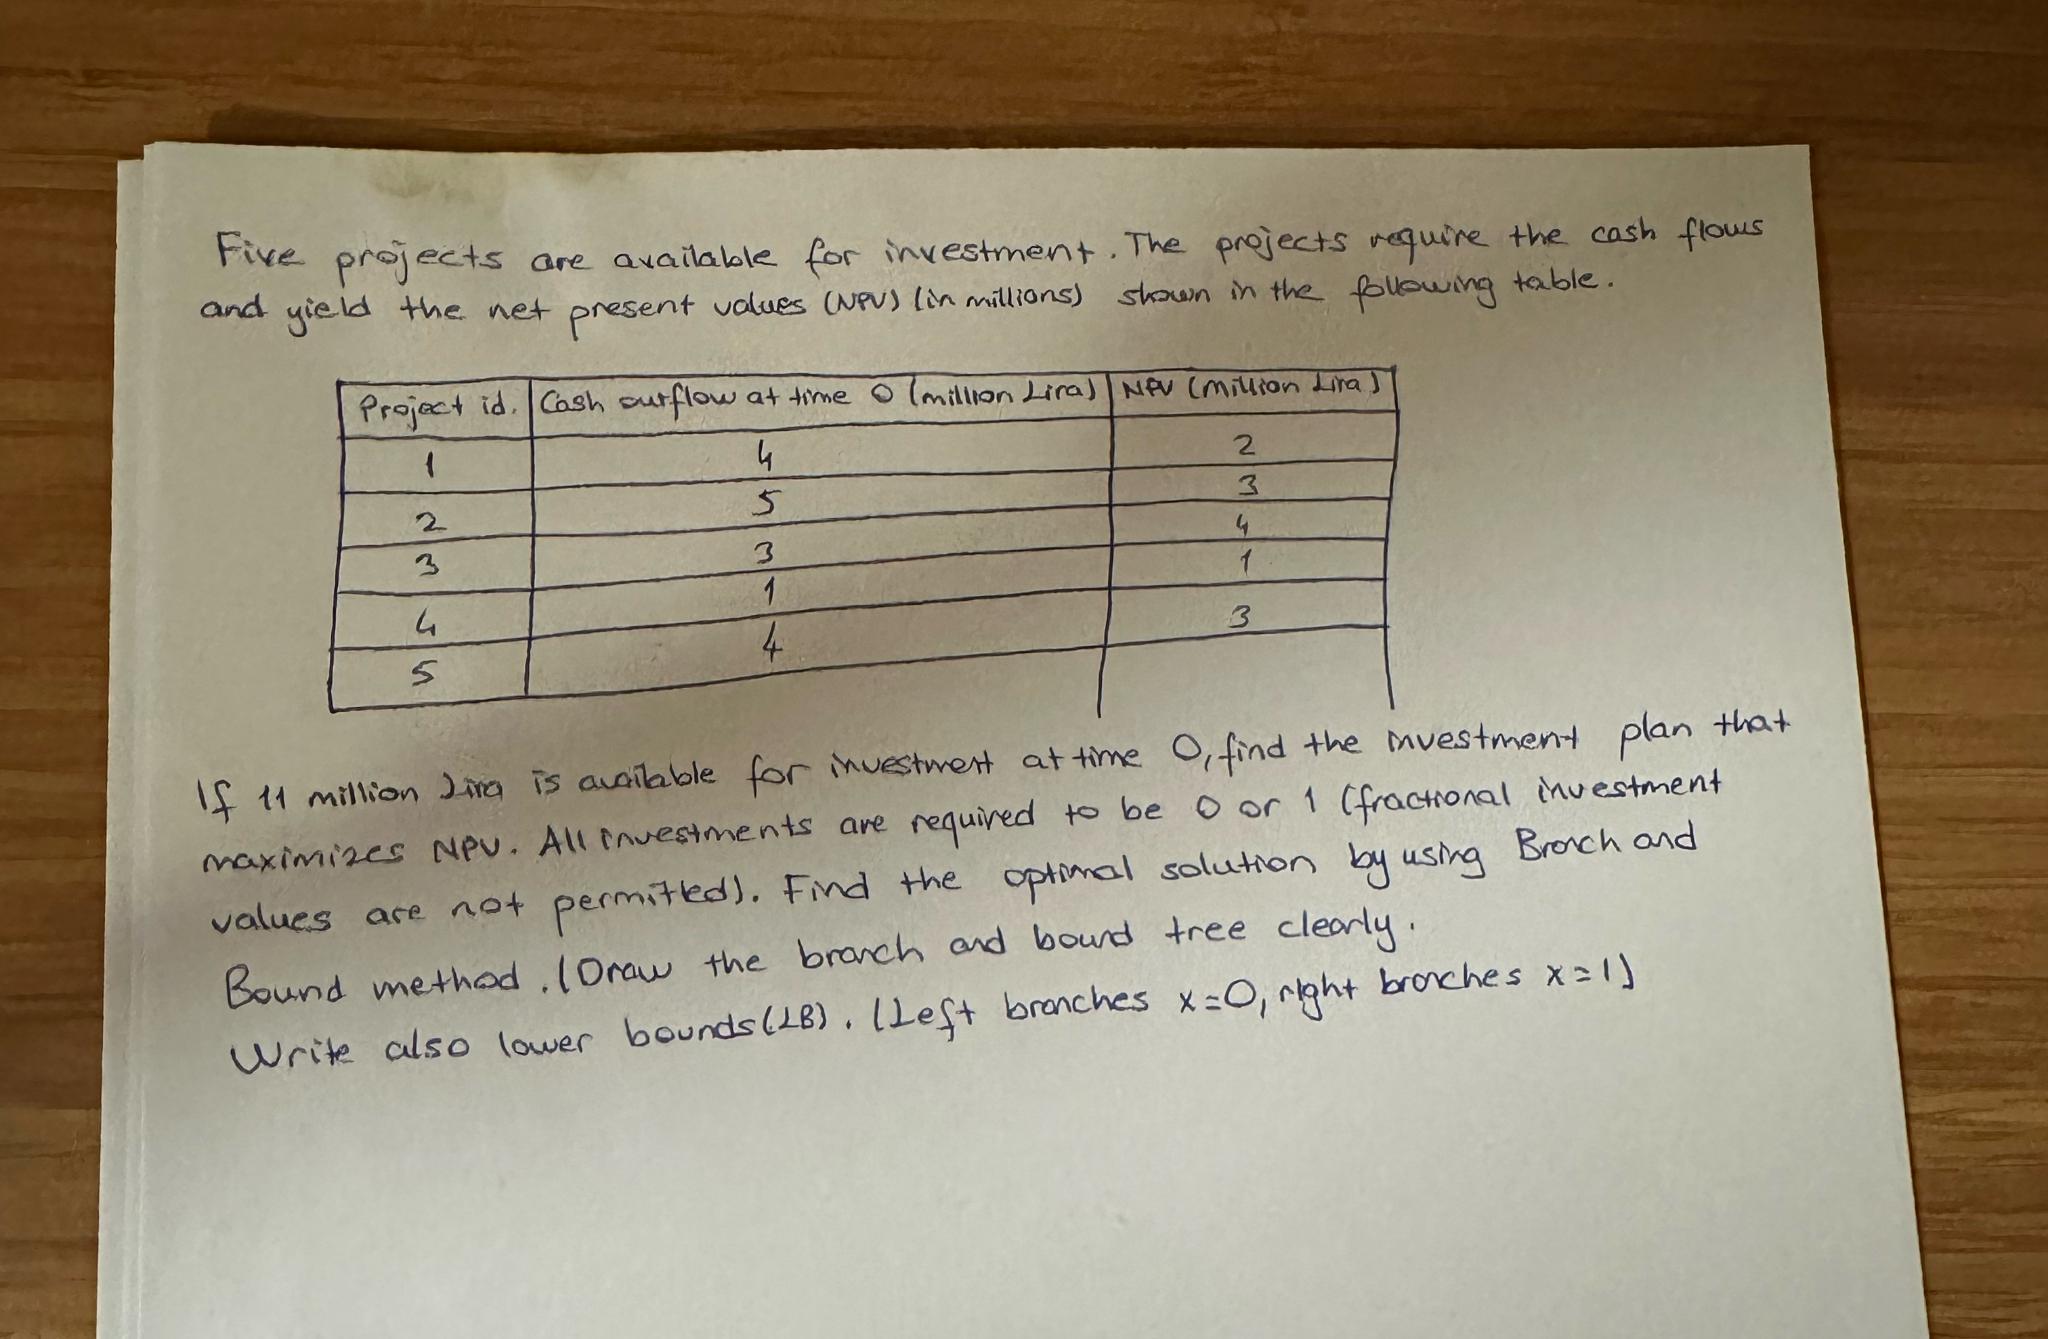 Five projects are available for investment. The projects require the cash flows
and yield the net present values (NPV) (in millions) shown in the following table.
Project id. Cash outflow at time 0 (million Lira) NPV (million Lira)
1 4 2
2 5 3
3 3 4
4 1 1
5 4 3
If 11 million Lira is available for investment at time 0, find the investment plan that
maximizes NPV. All investments are required to be 0 or 1 (fractional investment
values are not permitted). Find the optimal solution by using Branch and
Bound method. (Draw the branch and bound tree clearly.
Write also lower bounds (LB). (Left branches x=0, right branches x=1)